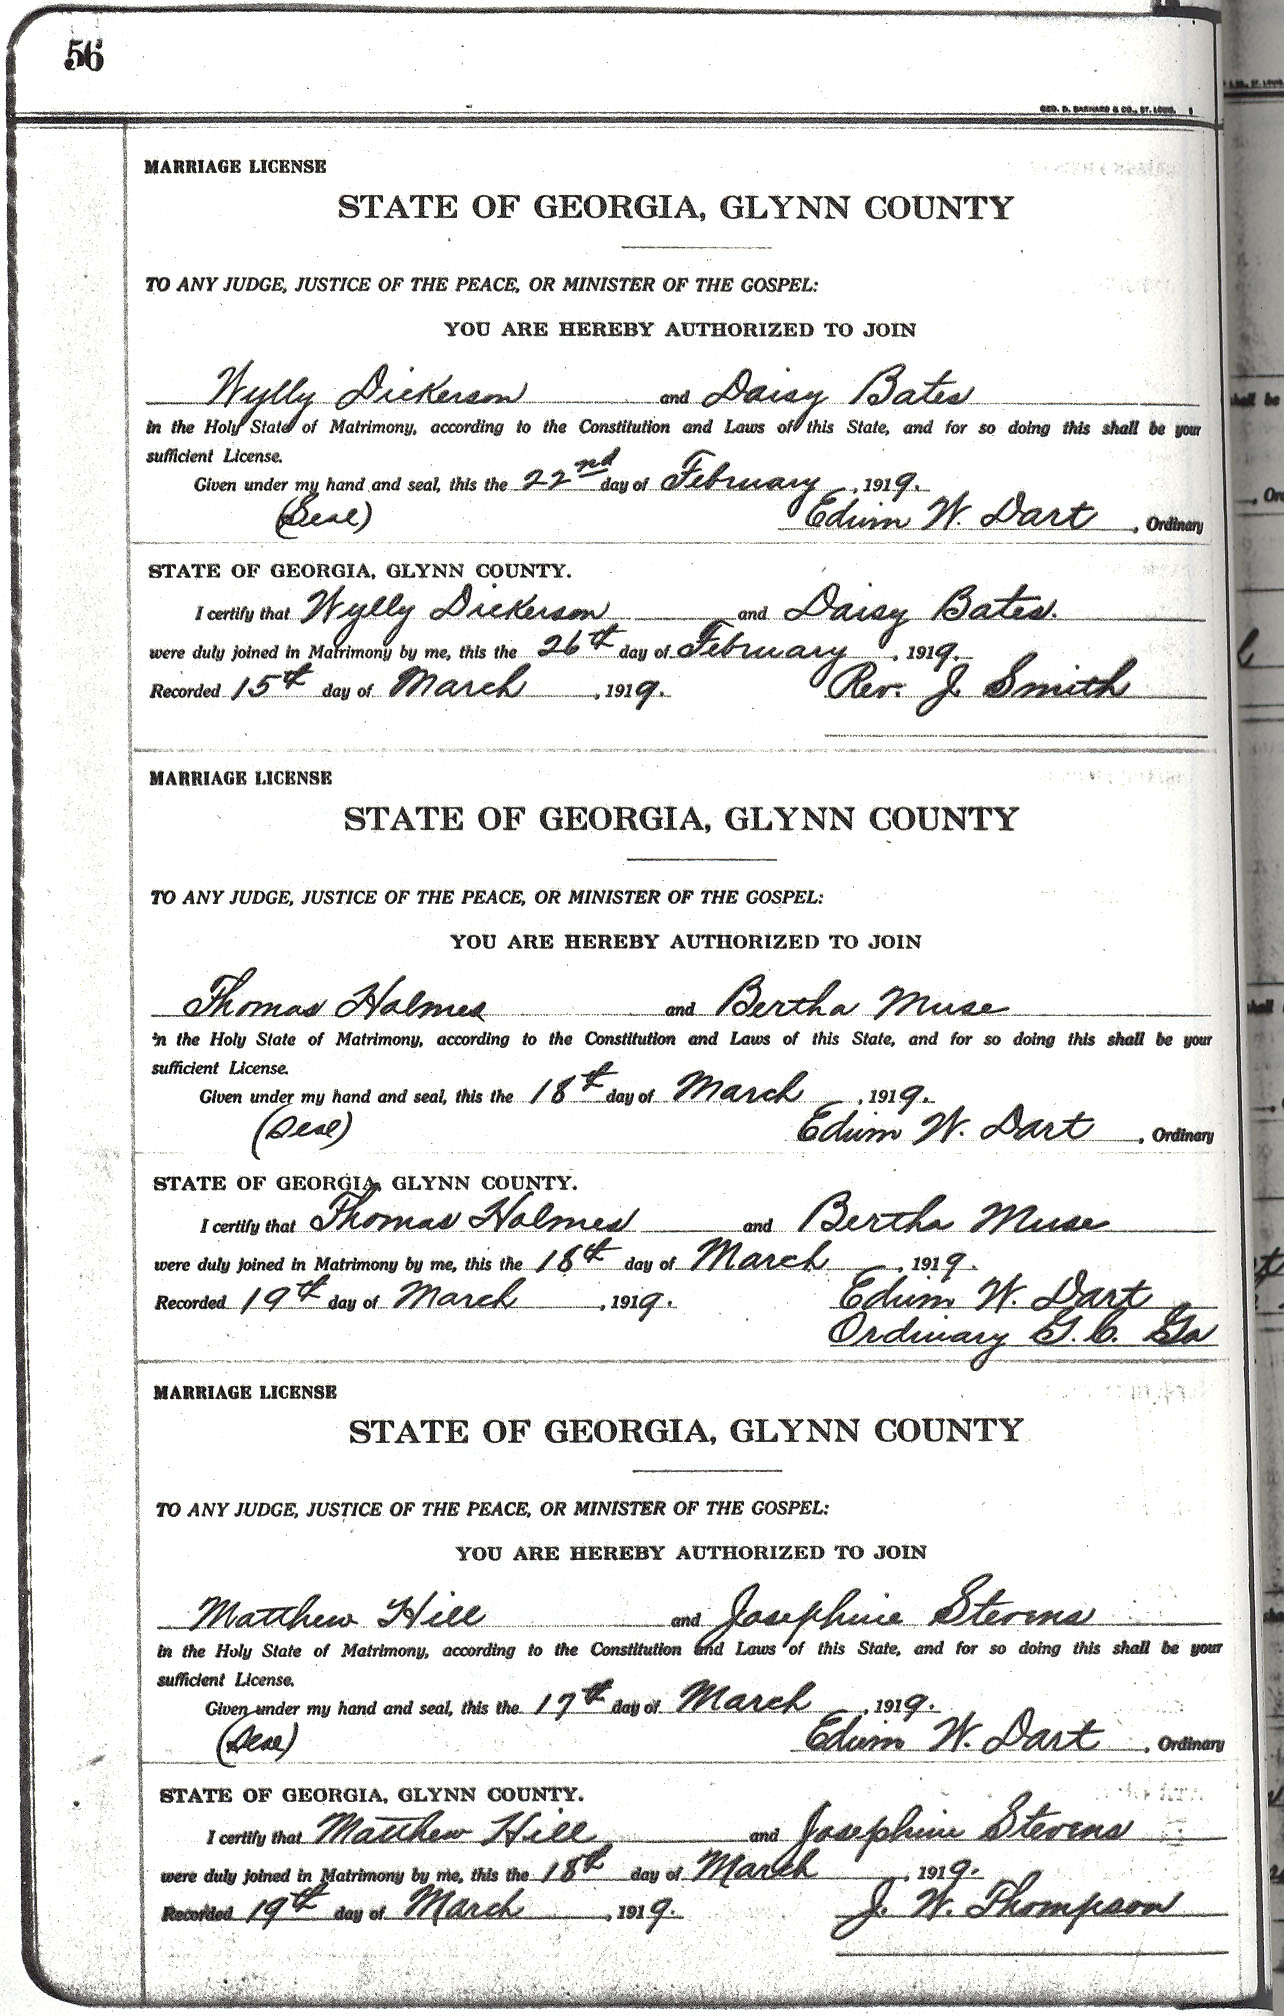 56
GEO. D. BARNARD & CO., ST. LOUIS.
MARRIAGE LICENSE
STATE OF GEORGIA, GLYNN COUNTY
TO ANY JUDGE, JUSTICE OF THE PEACE, OR MINISTER OF THE GOSPEL:
YOU ARE HEREBY AUTHORIZED TO JOIN
Wylly Dickerson and Daisy Bates
in the Holy State of Matrimony, according to the Constitution and Laws of this State, and for so doing this shall be your
sufficient License.
Given under my hand and seal, this the 22nd day of February, 1919.
(Seal) Edwin W. Dart, Ordinary
STATE OF GEORGIA, GLYNN COUNTY.
I certify that Wylly Dickerson and Daisy Bates.
were duly joined in Matrimony by me, this the 26th day of February, 1919.
Recorded 15th day of March, 1919. Rev. J. Smith
MARRIAGE LICENSE
STATE OF GEORGIA, GLYNN COUNTY
TO ANY JUDGE, JUSTICE OF THE PEACE, OR MINISTER OF THE GOSPEL:
YOU ARE HEREBY AUTHORIZED TO JOIN
Thomas Holmes and Bertha Muse
in the Holy State of Matrimony, according to the Constitution and Laws of this State, and for so doing this shall be your
sufficient License.
Given under my hand and seal, this the 18th day of March, 1919.
(Seal) Edwin W. Dart, Ordinary
STATE OF GEORGIA, GLYNN COUNTY.
I certify that Thomas Holmes and Bertha Muse
were duly joined in Matrimony by me, this the 18th day of March, 1919.
Recorded 19th day of March, 1919. Edwin W. Dart
Ordinary G. C. Ga
MARRIAGE LICENSE
STATE OF GEORGIA, GLYNN COUNTY
TO ANY JUDGE, JUSTICE OF THE PEACE, OR MINISTER OF THE GOSPEL:
YOU ARE HEREBY AUTHORIZED TO JOIN
Matthew Hill and Josephine Stevens
in the Holy State of Matrimony, according to the Constitution and Laws of this State, and for so doing this shall be your
sufficient License.
Given under my hand and seal, this the 17th day of March, 1919.
(Seal) Edwin W. Dart, Ordinary
STATE OF GEORGIA, GLYNN COUNTY.
I certify that Matthew Hill and Josephine Stevens
were duly joined in Matrimony by me, this the 18th day of March, 1919.
Recorded 19th day of March, 1919. J. W. Thompson